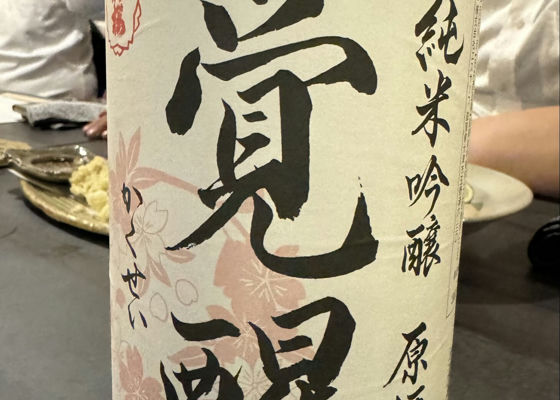 純米吟醸 原酒
覚醒
かくせい